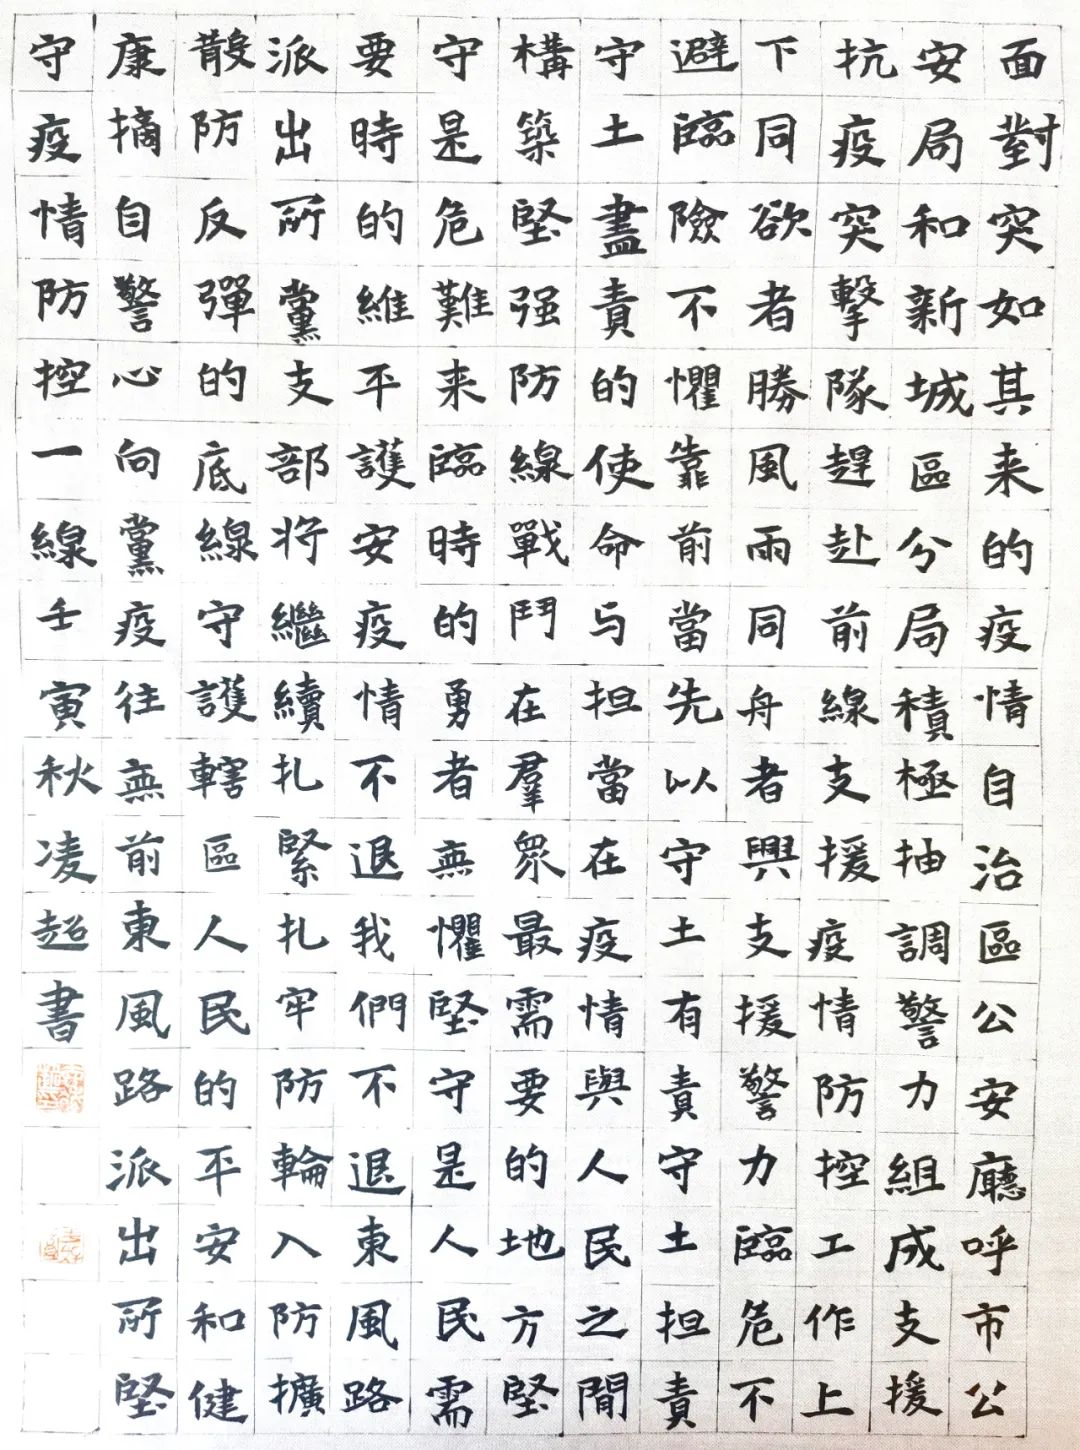 面對突如其来的疫情自治區公安廳呼市公
安局和新城區分局積極抽調警力組成支援
抗疫突擊隊趕赴前線支援疫情防控工作上
下同欲者勝風雨同舟者興支援警力臨危不
避臨險不懼靠前當先以守土有責守土担責
守土盡責的使命与担當在疫情與人民之間
構築堅强防線戰鬥在羣眾最需要的地方堅
守是危難来臨時的勇者無懼堅守是人民需
要時的維平護安疫情不退我們不退東風路
派出所黨支部将繼續扎緊扎牢防輪入防擴
散防反彈的底線守護轄區人民的平安和健
康摘自警心向黨疫往無前東風路派出所堅
守疫情防控一線壬寅秋凌超書